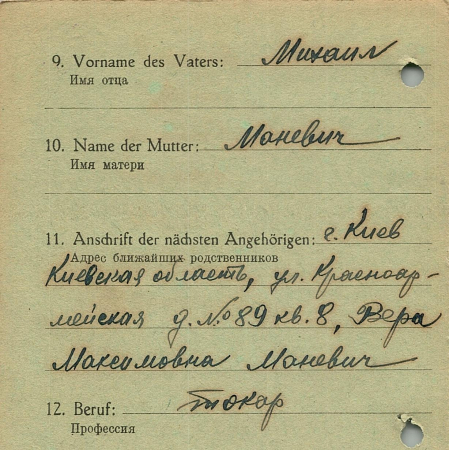 9. Vorname des Vaters: Михаил
Имя отца
10. Name der Mutter: Маневич
Имя матери
11. Anschrift der nächsten Angehörigen: г. Киев
Адрес ближайших родственников
Киевская область, ул. Красноар-
мейская д. № 89 кв. 8, Вера
Максимовна Маневич
12. Beruf: токар
Профессия